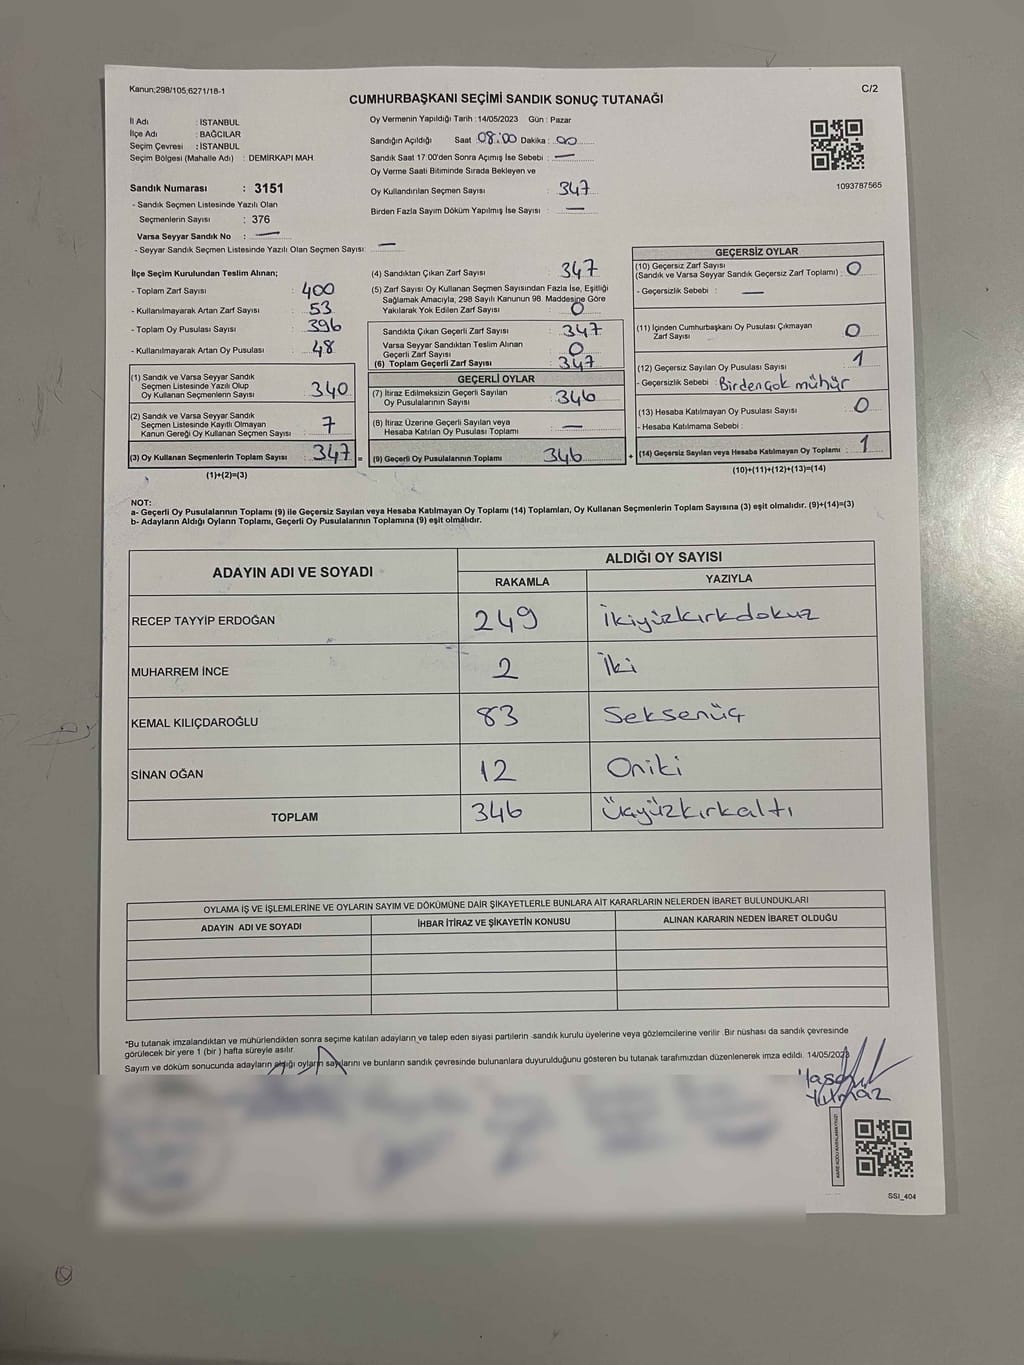 Kanun;298/105;6271/18-1
C/2
CUMHURBAŞKANI SEÇİMİ SANDIK SONUÇ TUTANAĞI
İl Adı : İSTANBUL
İlçe Adı : BAĞCILAR
Seçim Çevresi : İSTANBUL
Seçim Bölgesi (Mahalle Adı) : DEMİRKAPI MAH
Sandık Numarası : 3151
- Sandık Seçmen Listesinde Yazılı Olan
Seçmenlerin Sayısı : 376
Varsa Seyyar Sandık No : —
- Seyyar Sandık Seçmen Listesinde Yazılı Olan Seçmen Sayısı: —
Oy Vermenin Yapıldığı Tarih : 14/05/2023 Gün : Pazar
Sandığın Açıldığı Saat 08:00 Dakika : 00
Sandık Saat 17:00'den Sonra Açımış İse Sebebi : —
Oy Verme Saati Bitiminde Sırada Bekleyen ve
Oy Kullandırılan Seçmen Sayısı : 347
Birden Fazla Sayım Döküm Yapılmış İse Sayısı : —
1093787565
İlçe Seçim Kurulundan Teslim Alınan;
- Toplam Zarf Sayısı : 400
- Kullanılmayarak Artan Zarf Sayısı : 53
- Toplam Oy Pusulası Sayısı : 396
- Kullanılmayarak Artan Oy Pusulası : 48
(1) Sandık ve Varsa Seyyar Sandık
Seçmen Listesinde Yazılı Olup
Oy Kullanan Seçmenlerin Sayısı : 340
(2) Sandık ve Varsa Seyyar Sandık
Seçmen Listesinde Kayıtlı Olmayan
Kanun Gereği Oy Kullanan Seçmen Sayısı : 7
(3) Oy Kullanan Seçmenlerin Toplam Sayısı : 347 =
(1)+(2)=(3)
(4) Sandıktan Çıkan Zarf Sayısı : 347
(5) Zarf Sayısı Oy Kullanan Seçmen Sayısından Fazla İse, Eşitliği
Sağlamak Amacıyla, 298 Sayılı Kanunun 98. Maddesine Göre
Yakılarak Yok Edilen Zarf Sayısı : 0
Sandıkta Çıkan Geçerli Zarf Sayısı : 347
Varsa Seyyar Sandıktan Teslim Alınan
Geçerli Zarf Sayısı : 0
(6) Toplam Geçerli Zarf Sayısı : 347
GEÇERLİ OYLAR
(7) İtiraz Edilmeksizin Geçerli Sayılan
Oy Pusulalarının Sayısı : 346
(8) İtiraz Üzerine Geçerli Sayılan veya
Hesaba Katılan Oy Pusulası Toplamı : —
(9) Geçerli Oy Pusulalarının Toplamı 346 +
GEÇERSİZ OYLAR
(10) Geçersiz Zarf Sayısı
(Sandık ve Varsa Seyyar Sandık Geçersiz Zarf Toplamı) : 0
- Geçersizlik Sebebi : —
(11) İçinden Cumhurbaşkanı Oy Pusulası Çıkmayan
Zarf Sayısı : 0
(12) Geçersiz Sayılan Oy Pusulası Sayısı : 1
- Geçersizlik Sebebi : Birden çok mühür
(13) Hesaba Katılmayan Oy Pusulası Sayısı : 0
- Hesaba Katılmama Sebebi :
(14) Geçersiz Sayılan veya Hesaba Katılmayan Oy Toplamı : 1
(10)+(11)+(12)+(13)=(14)
NOT:
a- Geçerli Oy Pusulalarının Toplamı (9) ile Geçersiz Sayılan veya Hesaba Katılmayan Oy Toplamı (14) Toplamları, Oy Kullanan Seçmenlerin Toplam Sayısına (3) eşit olmalıdır. (9)+(14)=(3)
b- Adayların Aldığı Oyların Toplamı, Geçerli Oy Pusulalarının Toplamına (9) eşit olmalıdır.
ADAYIN ADI VE SOYADI
ALDIĞI OY SAYISI
RAKAMLA YAZIYLA
RECEP TAYYİP ERDOĞAN 249 İkiyüzkırkdokuz
MUHARREM İNCE 2 İki
KEMAL KILIÇDAROĞLU 83 Seksenüç
SİNAN OĞAN 12 Oniki
TOPLAM 346 Üçyüzkırkaltı
OYLAMA İŞ VE İŞLEMLERİNE VE OYLARIN SAYIM VE DÖKÜMÜNE DAİR ŞİKAYETLERLE BUNLARA AİT KARARLARIN NELERDEN İBARET BULUNDUKLARI
ADAYIN ADI VE SOYADI İHBAR İTİRAZ VE ŞİKAYETİN KONUSU ALINAN KARARIN NEDEN İBARET OLDUĞU
*Bu tutanak imzalandıktan ve mühürlendikten sonra seçime katılan adayların ve talep eden siyasi partilerin sandık kurulu üyelerine veya gözlemcilerine verilir. Bir nüshası da sandık çevresinde
görülecek bir yere 1 (bir) hafta süreyle asılır.
Sayım ve döküm sonucunda adayların aldığı oyların sayılarını ve bunların sandık çevresinde bulunanlara duyurulduğunu gösteren bu tutanak tarafımızdan düzenlenerek imza edildi. 14/05/2023
Yılmaz
SSI_404